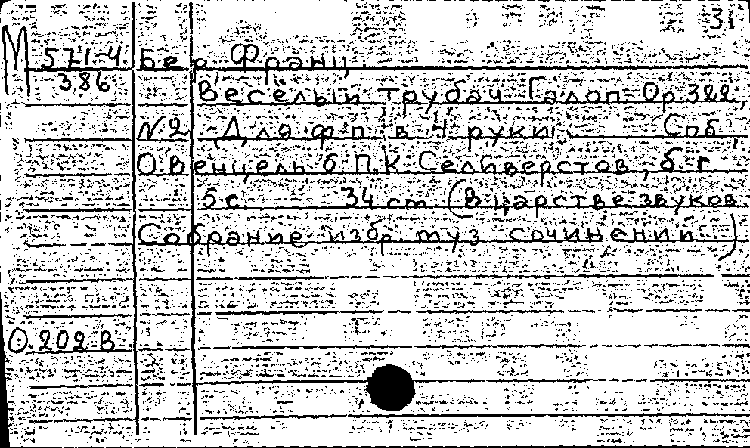 31
М 571-4 Бер, Франц.
3.86
Веселый трубач. Галоп. Op. 322,
N. 2. Для ф.п. в 4 руки. Спб,
О. Венцель б. П.К. Селиверстов, б. г.
5 с. 34 см. (В царстве звуков.
Собрание избр. муз. сочинений.)
О. 202 В